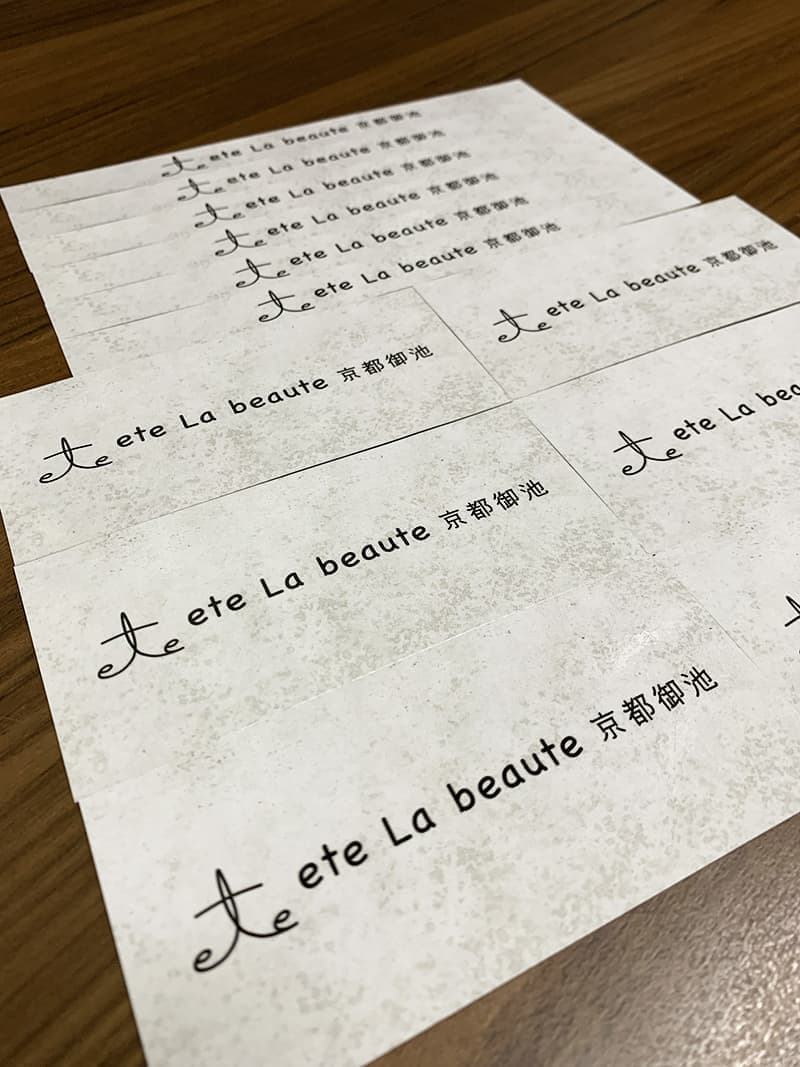 ete ete La beaute 京都御池
ete ete La beaute 京都御池
ete ete La beaute 京都御池
ete ete La beaute 京都御池
ete ete La beaute 京都御池
ete ete La beaute 京都御池
ete ete La beaute 京都御池
ete ete La beaute 京都御池
ete ete La beaute 京都御池
ete ete La
ete ete La beaute 京都御池